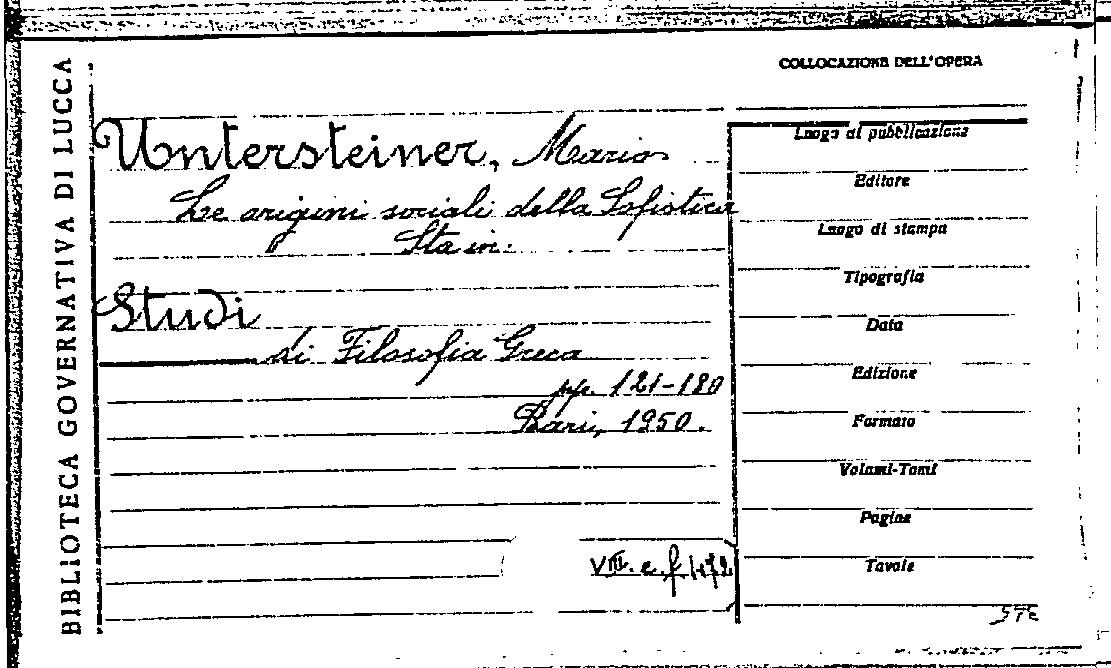 BIBLIOTECA GOVERNATIVA DI LUCCA
COLLOCAZIONE DELL'OPERA
Untersteiner, Mario
Le origini sociali della Sofistica
Sta in:
Studi
di Filosofia Greca
pp. 121-180
Bari, 1950.
VIII. e. f.
Luogo di pubblicazione
Editore
Luogo di stampa
Tipografia
Data
Edizione
Formato
Volumi-Tomi
Pagine
Tavole